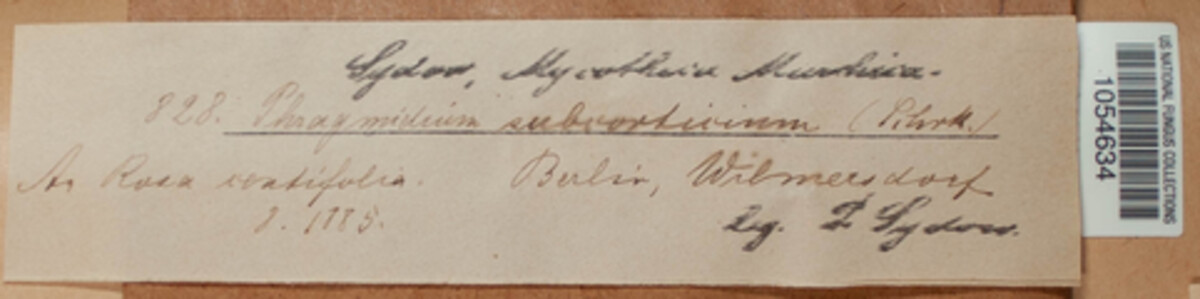 Sydow, Mycotheca Marchica.
828. Phragmidium subcorticium (Schrk.)
An Rosa centifolia. Berlin, Wilmersdorf
8. 1885. leg. P. Sydow.
US NATIONAL FUNGUS COLLECTIONS
1054634